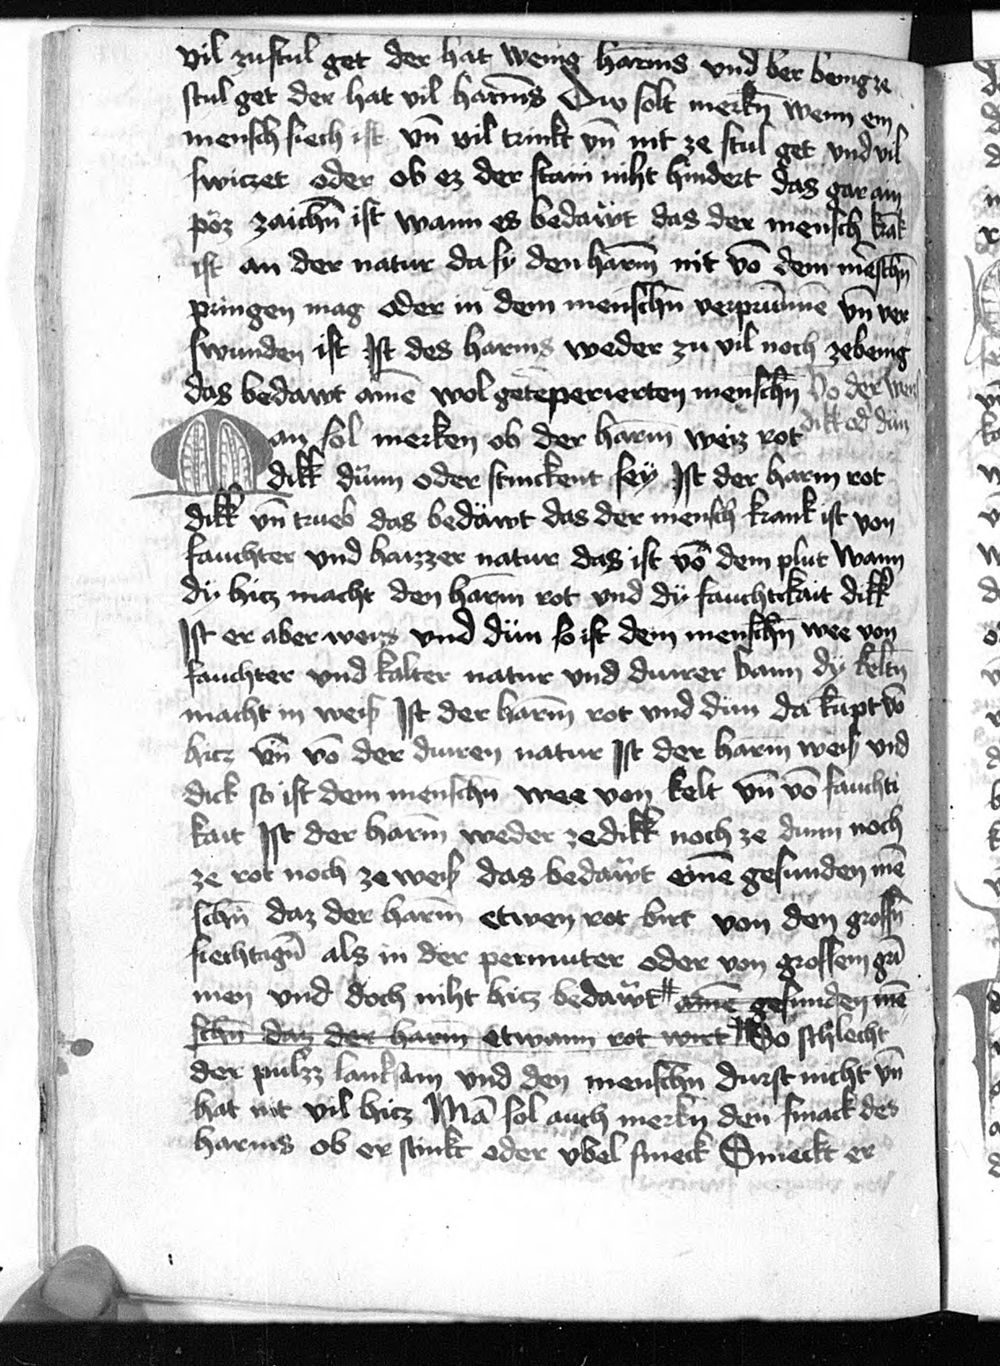 vil zustul get der hat wenig harms vnd ber benig ze
stul get der hat vil harms Dw solt merkn̄ wenn ein
mensch siech ist vn̄ vil trinkt vn̄ nit ze stul get vnd vil
swiczet oder ob ez der stain niht hindert das gar ain
pöz zaichn̄ ist wann es bedäwt das der mensch krāk
ist an der natur da sy den harm̄ nit vō dem mēschn̄
pringen mag oder in dem menschn̄ verprunnē vn̄ ver
swunden ist Ist des harms weder zu vil noch ze benig
das bedawt ainē wol getēperierten menschn̄ Vō der weis
dikk od dün
Man sol merken ob der harm̄ weiz rot
dikk dünn oder stinckent seÿ Ist der harm rot
dikk vn̄ trueb das bedäwt das der mensch krank ist von
fauchter vnd haizzer natur das ist vō dem plut Wann
dÿ hicz macht den harm̄ rot vnd dÿ fauchtikait dikk
Ist er aber weis vnd dün so ist dem menschn̄ wee von
fauchter vnd kalter natur vnd durrer bann dÿ keltn̄
macht in weiß Ist der harm̄ rot vnd dün da kūpt vō
hicz vn̄ vō der durren natur Ist der harm̄ weiß vnd
dick so ist dem menschn̄ wee von kelt vn̄ vō fauchti
kait Ist der harm̄ weder ze dikk noch ze dünn noch
ze rot noch ze weiß das bedäwt einē gesunden mē
schn̄ daz der harm̄ etwen rot birt von den grossn̄
siechtagn̄ als in der permuter oder von grossem grī
men vnd doch niht hicz bedäwt ainē gesunden mē
schn̄ daz der harm̄ etwann rot wirt So schlecht
der pulzz lanksam vnd den menschn̄ durst nicht vn̄
hat nit vil hicz Mā sol auch merkn̄ den smack des
harms ob er stinkt oder vbel smeck Smeckt er